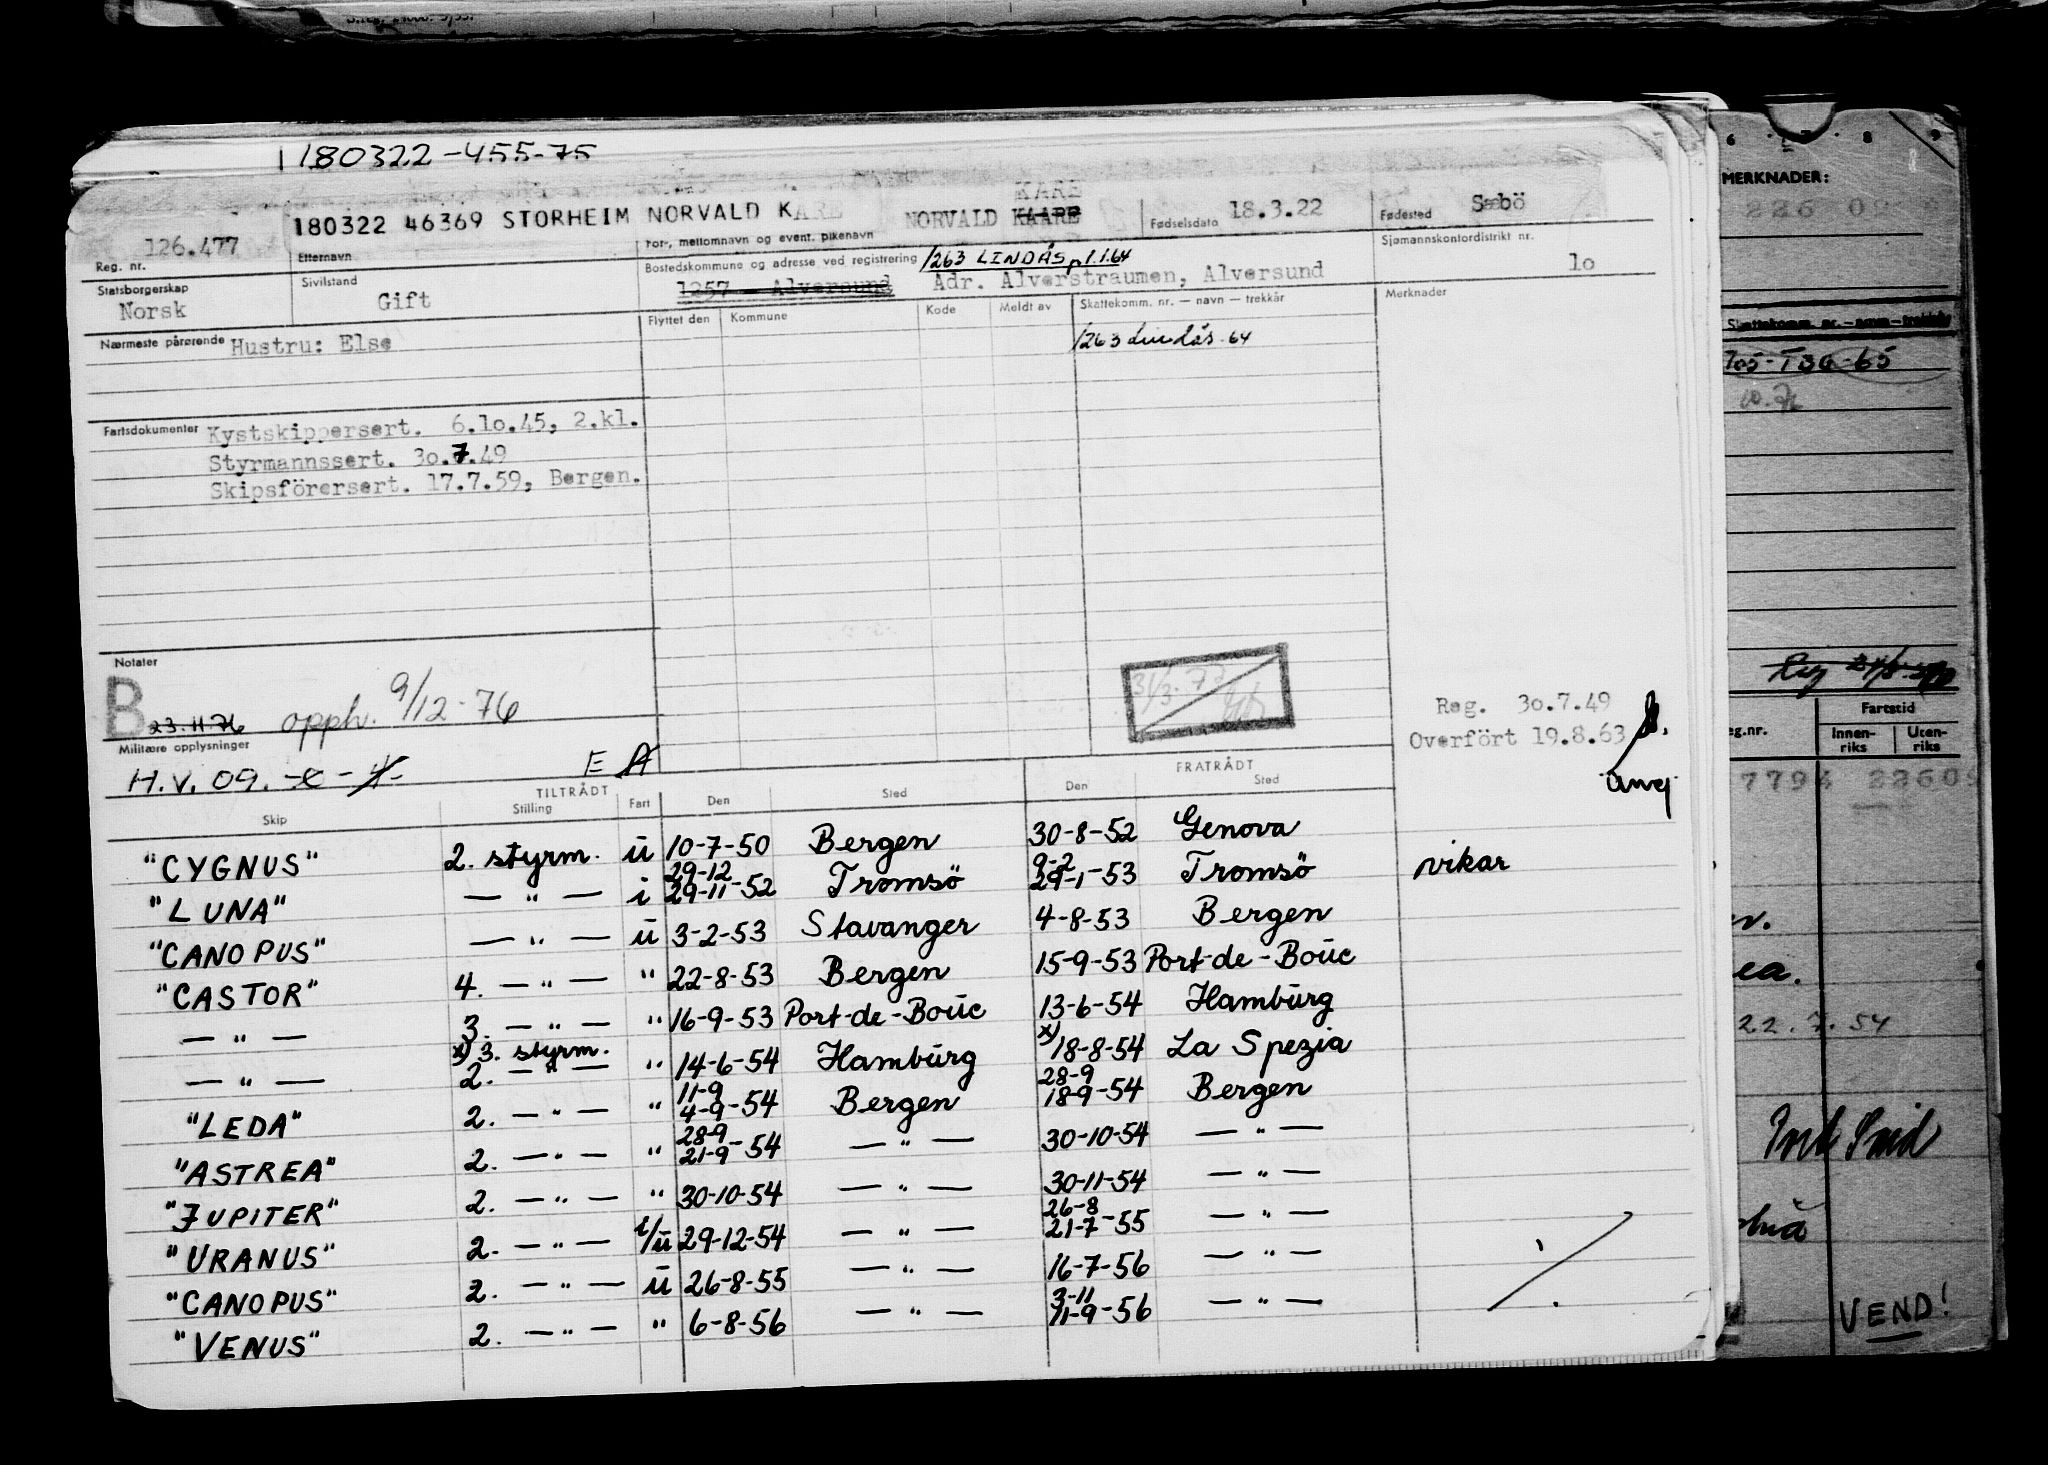 180322-455-75
180322 46369 STORHEIM NORVALD KARE
KARE
NORVALD KAARE
Fødselsdato 18.3.22
Fødested Sæbö
126.477
Reg. nr.
Etternavn
For-, mellomnavn og event. pikenavn
Statsborgerskap
Norsk
Sivilstand
Gift
Bostedskommune og adresse ved registrering 1263 LINDÅS p 1.1.64
1257 - Alversund Adr. Alverstraumen, Alversund
Sjømannskontordistrikt nr.
10
Nærmeste pårørende Hustru: Else
Flyttet den Kommune Kode Meldt av Skattekomm. nr. — navn — trekkår
1263 Lindås. 64
Merknader
Fartsdokumenter Kystskippersert. 6.10.45, 2.kl.
Styrmannssert. 30.7.49
Skipsförersert. 17.7.59, Bergen.
Notater
B 23.11.76 opph. 9/12-76
31/3.77
Reg. 30.7.49
Overfört 19.8.63
Militære opplysninger
H.V. 09.
E A
TILTRÅDT FRATRÅDT
Skip Stilling Fart Den Sted Den Sted
"CYGNUS" 2. styrm. u 10-7-50 Bergen 30-8-52 Genova
29-12 9-2
"LUNA" — " — i 29-11-52 Tromsö 29-1-53 Tromsö vikar
"CANOPUS" — " — u 3-2-53 Stavanger 4-8-53 Bergen
"CASTOR" 4. — " — " 22-8-53 Bergen 15-9-53 Port-de-Bouc
— " — 3. — " — " 16-9-53 Port-de-Bouc 13-6-54 Hamburg
x) 3. styrm.
— " — 2. — " — " 14-6-54 Hamburg x) 18-8-54 La Spezia
11-9 28-9
"LEDA" 2. — " — " 4-9-54 Bergen 18-9-54 Bergen
28-9
"ASTREA" 2. — " — " 21-9-54 — " — 30-10-54 — " —
"JUPITER" 2. — " — " 30-10-54 — " — 30-11-54 — " —
26-8
"URANUS" 2. — " — i/u 29-12-54 — " — 21-7-55 — " —
"CANOPUS" 2. — " — u 26-8-55 — " — 16-7-56 — " —
3-11
"VENUS" 2. — " — " 6-8-56 — " — 11-9-56 — " —
6 · 7 · 8 9
MERKNADER:
Skattekomm. nr.—navn—trekkår
Fartstid
Innen-riks Uten-riks
22.7.54
VEND!